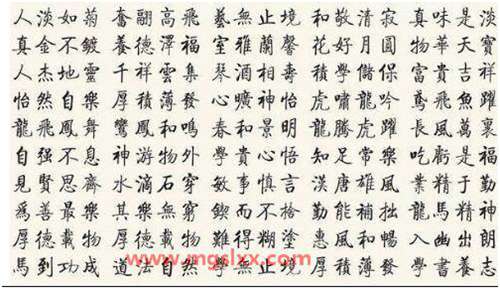 人淡如菊 奮翮高飛 藝無止境 和敬清寂 真味是淡
真金不鍍 養德澤福 室雅蘭馨 花好月圓 物華天寶
人杰地靈 千祥雲集 琴酒相壽 積學儲保 富貴吉祥
怡然自樂 厚積薄發 心曠神怡 虎嘯龍吟 鳶飛魚躍
龍飛鳳舞 鸞鳳和鳴 春和景明 龍騰虎躍 長風萬裏
自强不息 神游物外 學貴心悟 知足常樂 吃虧是福
見賢思齊 水滴石穿 敏事慎言 漢唐雄風 業精于勤
爲善最樂 其樂無窮 鍥而不捨 勤能補拙 龍馬精神
厚德載物 得糊塗 惠風和暢 入幽出朗
馬到功成 道法自然 學無止境 厚積薄發 學書志
www.mgslxx.com